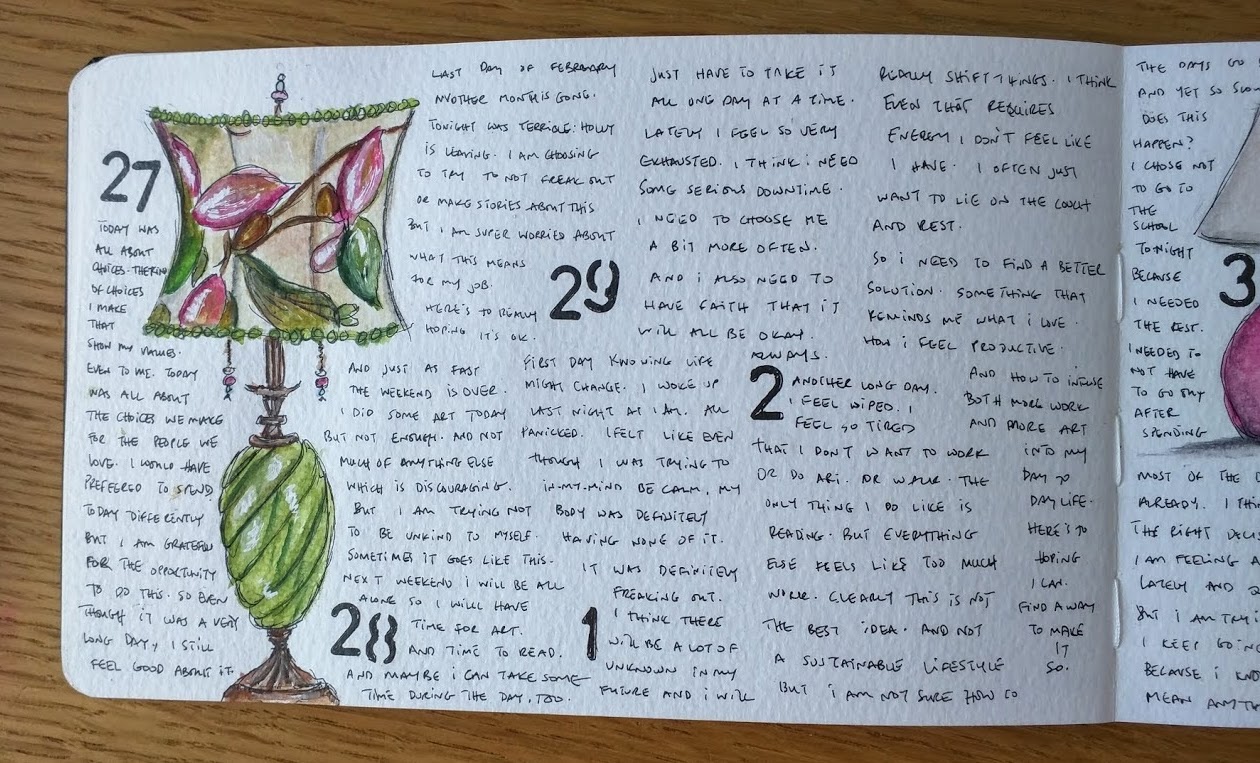 27
TODAY WAS
ALL ABOUT
CHOICES. THE KIND
OF CHOICES
I MAKE
THAT
SHOW MY VALUES.
EVEN TO ME. TODAY
WAS ALL ABOUT
THE CHOICES WE MAKE
FOR THE PEOPLE WE
LOVE. I WOULD HAVE
PREFERRED TO SPEND
TODAY DIFFERENTLY
BUT I AM GRATEFUL
FOR THE OPPORTUNITY
TO DO THIS. SO EVEN
THOUGH IT WAS A VERY
LONG DAY, I STILL
FEEL GOOD ABOUT IT.
28
AND JUST AS FAST
THE WEEKEND IS OVER.
I DID SOME ART TODAY
BUT NOT ENOUGH. AND NOT
MUCH OF ANYTHING ELSE
WHICH IS DISCOURAGING.
BUT I AM TRYING NOT
TO BE UNKIND TO MYSELF.
SOMETIMES IT GOES LIKE THIS.
NEXT WEEKEND I WILL BE ALL
ALONE SO I WILL HAVE
TIME FOR ART.
AND TIME TO READ.
AND MAYBE I CAN TAKE SOME
TIME DURING THE DAY, TOO.
29
LAST DAY OF FEBRUARY
ANOTHER MONTH IS GONE.
TONIGHT WAS TERRIBLE: HOLLY
IS LEAVING. I AM CHOOSING
TO TRY TO NOT FREAK OUT
OR MAKE STORIES ABOUT THIS
BUT I AM SUPER WORRIED ABOUT
WHAT THIS MEANS
FOR MY JOB.
HERE'S TO REALLY
HOPING IT'S OK.
1
FIRST DAY KNOWING LIFE
MIGHT CHANGE. I WOKE UP
LAST NIGHT AT 1 AM. ALL
PANICKED. I FELT LIKE EVEN
THOUGH I WAS TRYING TO
IN-MY-MIND BE CALM, MY
BODY WAS DEFINITELY
HAVING NONE OF IT.
IT WAS DEFINITELY
FREAKING OUT.
I THINK THERE
WILL BE A LOT OF
UNKNOWN IN MY
FUTURE AND I WILL
JUST HAVE TO TAKE IT
ALL ONE DAY AT A TIME.
LATELY I FEEL SO VERY
EXHAUSTED. I THINK I NEED
SOME SERIOUS DOWNTIME.
I NEED TO CHOOSE ME
A BIT MORE OFTEN.
AND I ALSO NEED TO
HAVE FAITH THAT IT
WILL ALL BE OKAY.
ALWAYS.
2
ANOTHER LONG DAY.
I FEEL WIPED. I
FEEL SO TIRED
THAT I DON'T WANT TO WORK
OR DO ART. OR WALK. THE
ONLY THING I DO LIKE IS
READING. BUT EVERYTHING
ELSE FEELS LIKE TOO MUCH
WORK. CLEARLY THIS IS NOT
THE BEST IDEA. AND NOT
A SUSTAINABLE LIFESTYLE
BUT I AM NOT SURE HOW TO
REALLY SHIFT THINGS. I THINK
EVEN THAT REQUIRES
ENERGY I DON'T FEEL LIKE
I HAVE. I OFTEN JUST
WANT TO LIE ON THE COUCH
AND REST.
SO I NEED TO FIND A BETTER
SOLUTION. SOMETHING THAT
REMINDS ME WHAT I LOVE.
HOW I FEEL PRODUCTIVE.
AND HOW TO INFUSE
BOTH MORE WORK
AND MORE ART
INTO MY
DAY TO
DAY LIFE.
HERE'S TO
HOPING
I CAN.
FIND A WAY
TO MAKE
IT
SO.
3
THE DAYS GO
AND YET SO
DOES THIS
HAPPEN?
I CHOSE NOT
TO GO TO
THE
SCHOOL
TONIGHT
BECAUSE
I NEEDED
THE REST.
I NEEDED TO
NOT HAVE
TO GO OUT
AFTER
SPENDING
MOST OF THE
ALREADY. I
THE RIGHT
I AM FEELING
LATELY AND
BUT I AM
I KEEP
BECAUSE I
MEAN